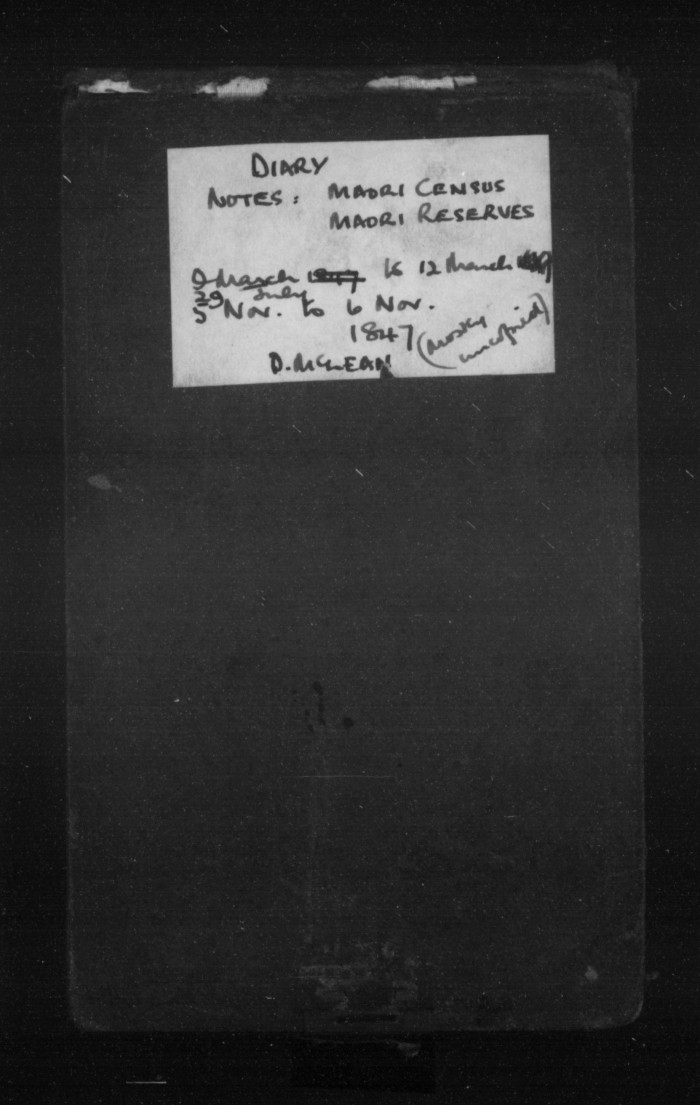 DIARY
NOTES: MAORI CENSUS
MAORI RESERVES
9 March 1847 to 12 March
29 July
5 Nov. to 6 Nov.
1847 (mostly
uncopied)
D. McLEAN